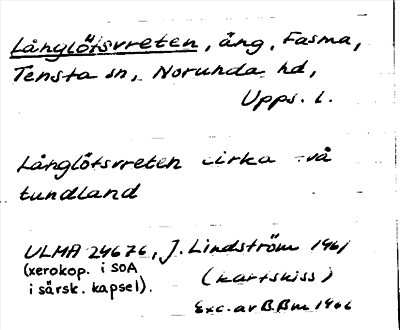 Långlötsvreten, äng, Fasma,
Tensta sn, Norunda hd,
Upps. l.
Långlötsvreten cirka två
tundland
ULMA 24676, J. Lindström 1961
(xerokop. i SOA
i särsk. kapsel).
(kartskiss)
Exc. av BBm 1966